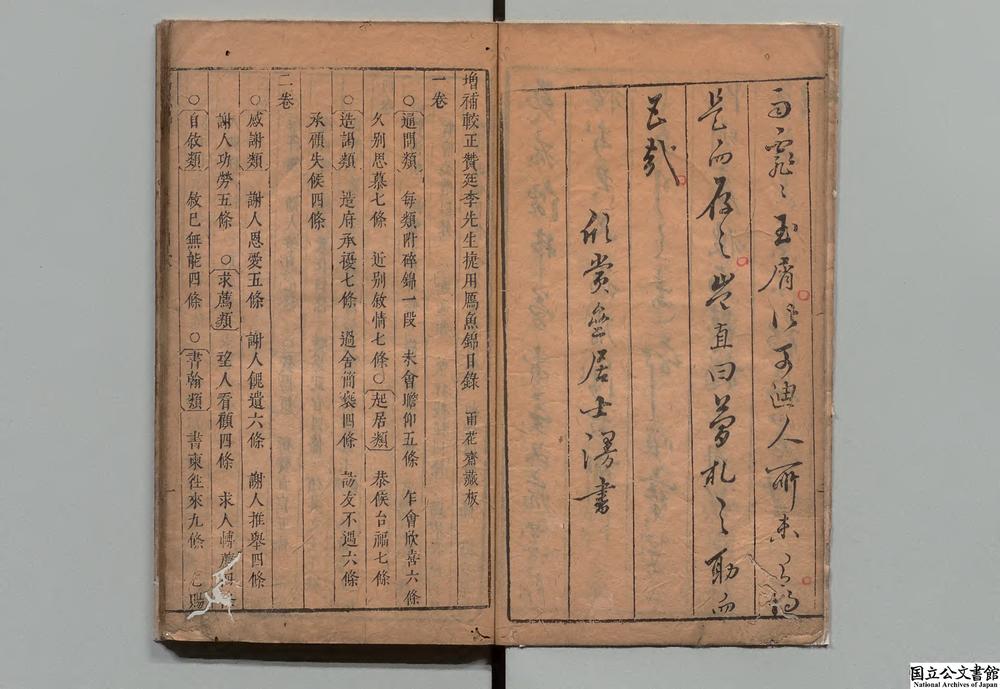 是而存之豈直曰爲札之助而
已哉
欣賞齋居士漫書
增補較正贊廷李先生捷用鴈魚錦目錄 雨花齋藏板
一卷
○通問類 每類附碎錦一段 未會瞻仰五條 乍會欣喜六條
久別思慕七條 近別敘情七條○起居類 恭候台福七條
○造謁類 造府承擾七條 過舍簡褻四條 訪友不遇六條
承顧失候四條
二卷
○感謝類 謝人恩愛五條 謝人餽遺六條 謝人推舉四條
謝人功勞五條 ○求薦類 望人看顧四條 求人轉薦四條
○自敘類 敘己無能四條 ○書翰類 書柬往來九條
国立公文書館
National Archives of Japan